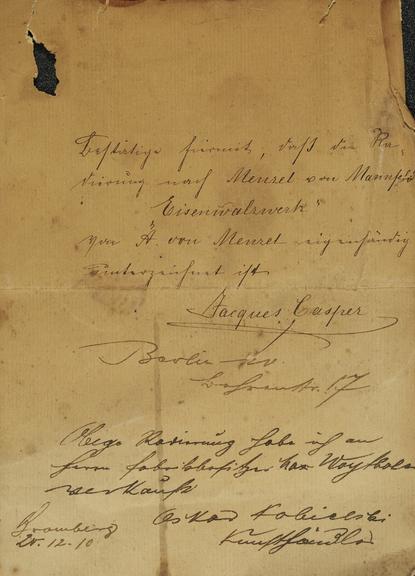 Bestätige hiermit, daß die Ra-
dierung nach Menzel von Mannfeld
„Eisenwalzwerk“
von A. von Menzel eigenhändig
unterzeichnet ist
Jacques Casper
Berlin
Behrenstr. 17
Obige Radierung habe ich an
Herrn Fabrikbesitzer Max
verkauft
Oskar Kobielski
Kunsthändler
Bromberg
20.12.10